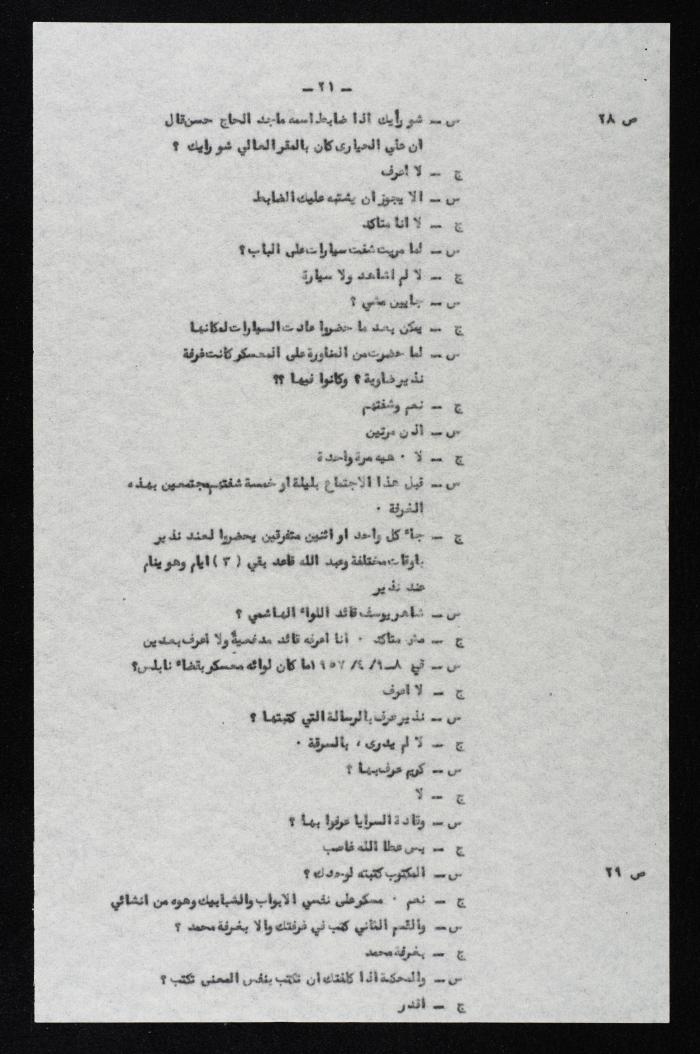 – ٢١ –
ص ٢٨
س – شو رأيك اذا ضابط اسمه ماجد الحاج حسن قال
ان علي الحياري كان بالمقر العالي شو رايك ؟
ج – لا اعرف
س – الا يجوز ان يشتبه عليك الضابط
ج – لا انا متاكد
س – لما مريت شفت سيارات على الباب ؟
ج – لا لم اشاهد ولا سيارة
س – جايين مشي ؟
ج – يمكن بعد ما حضروا عادت السيارات لمكانها
س – لما حضرت من المناورة على المعسكر كانت غرفة
نذير ضاوية ؟ وكانوا فيها ؟؟
ج – نعم وشفتهم
س – اذن مرتين
ج – لا ٠ هيه مرة واحدة
س – قبل هذا الاجتماع بليلة او خمسة شفتهم مجتمعين بهذه
الغرفة ٠
ج – جاء كل واحد او اثنين متفرقين يحضروا لعند نذير
باوقات مختلفة وعبد الله قاعد بقي ( ٣ ) ايام وهو ينام
عند نذير
س – شاهر يوسف قائد اللواء الهاشمي ؟
ج – مش متاكد ٠ انا اعرفه قائد مدفعية ولا اعرف بعدين
س – في ٨ـ٩/ ٤/ ١٩٥٧ اما كان لوائه معسكر بقضاء نابلس؟
ج – لا اعرف
س – نذير عرف بالرسالة التي كتبتها ؟
ج – لا لم يدرى ، بالسرقة ٠
س – كريم عرف بها ؟
ج – لا
س – وقادة السرايا عرفوا بها ؟
ج – بس عطا الله غاصب
ص ٢٩
س – المكتوب كتبته لوحدك ؟
ج – نعم ٠ مسكر على نفسي الابواب والشبابيك وهوه من انشائي
س – والقسم الثاني كتب في غرفتك والا بغرفة محمد ؟
ج – بغرفة محمد
س – والمحكمة اذا كلفتك ان تكتب بنفس المعنى تكتب ؟
ج – اقدر